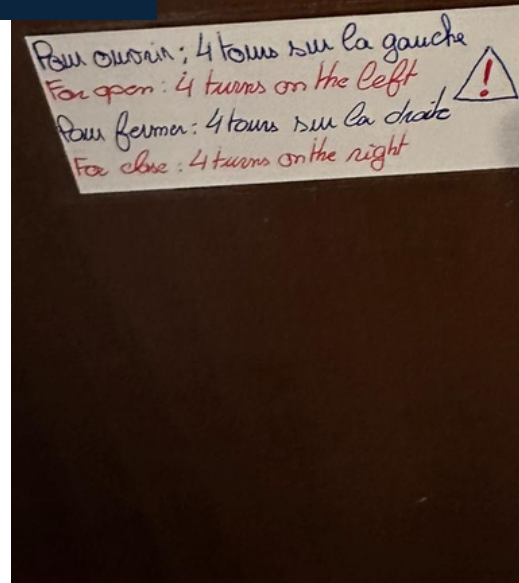 Pour ouvrir : 4 tours sur la gauche
For open : 4 turns on the left
Pour fermer : 4 tours sur la droite
For close : 4 turns on the right
!